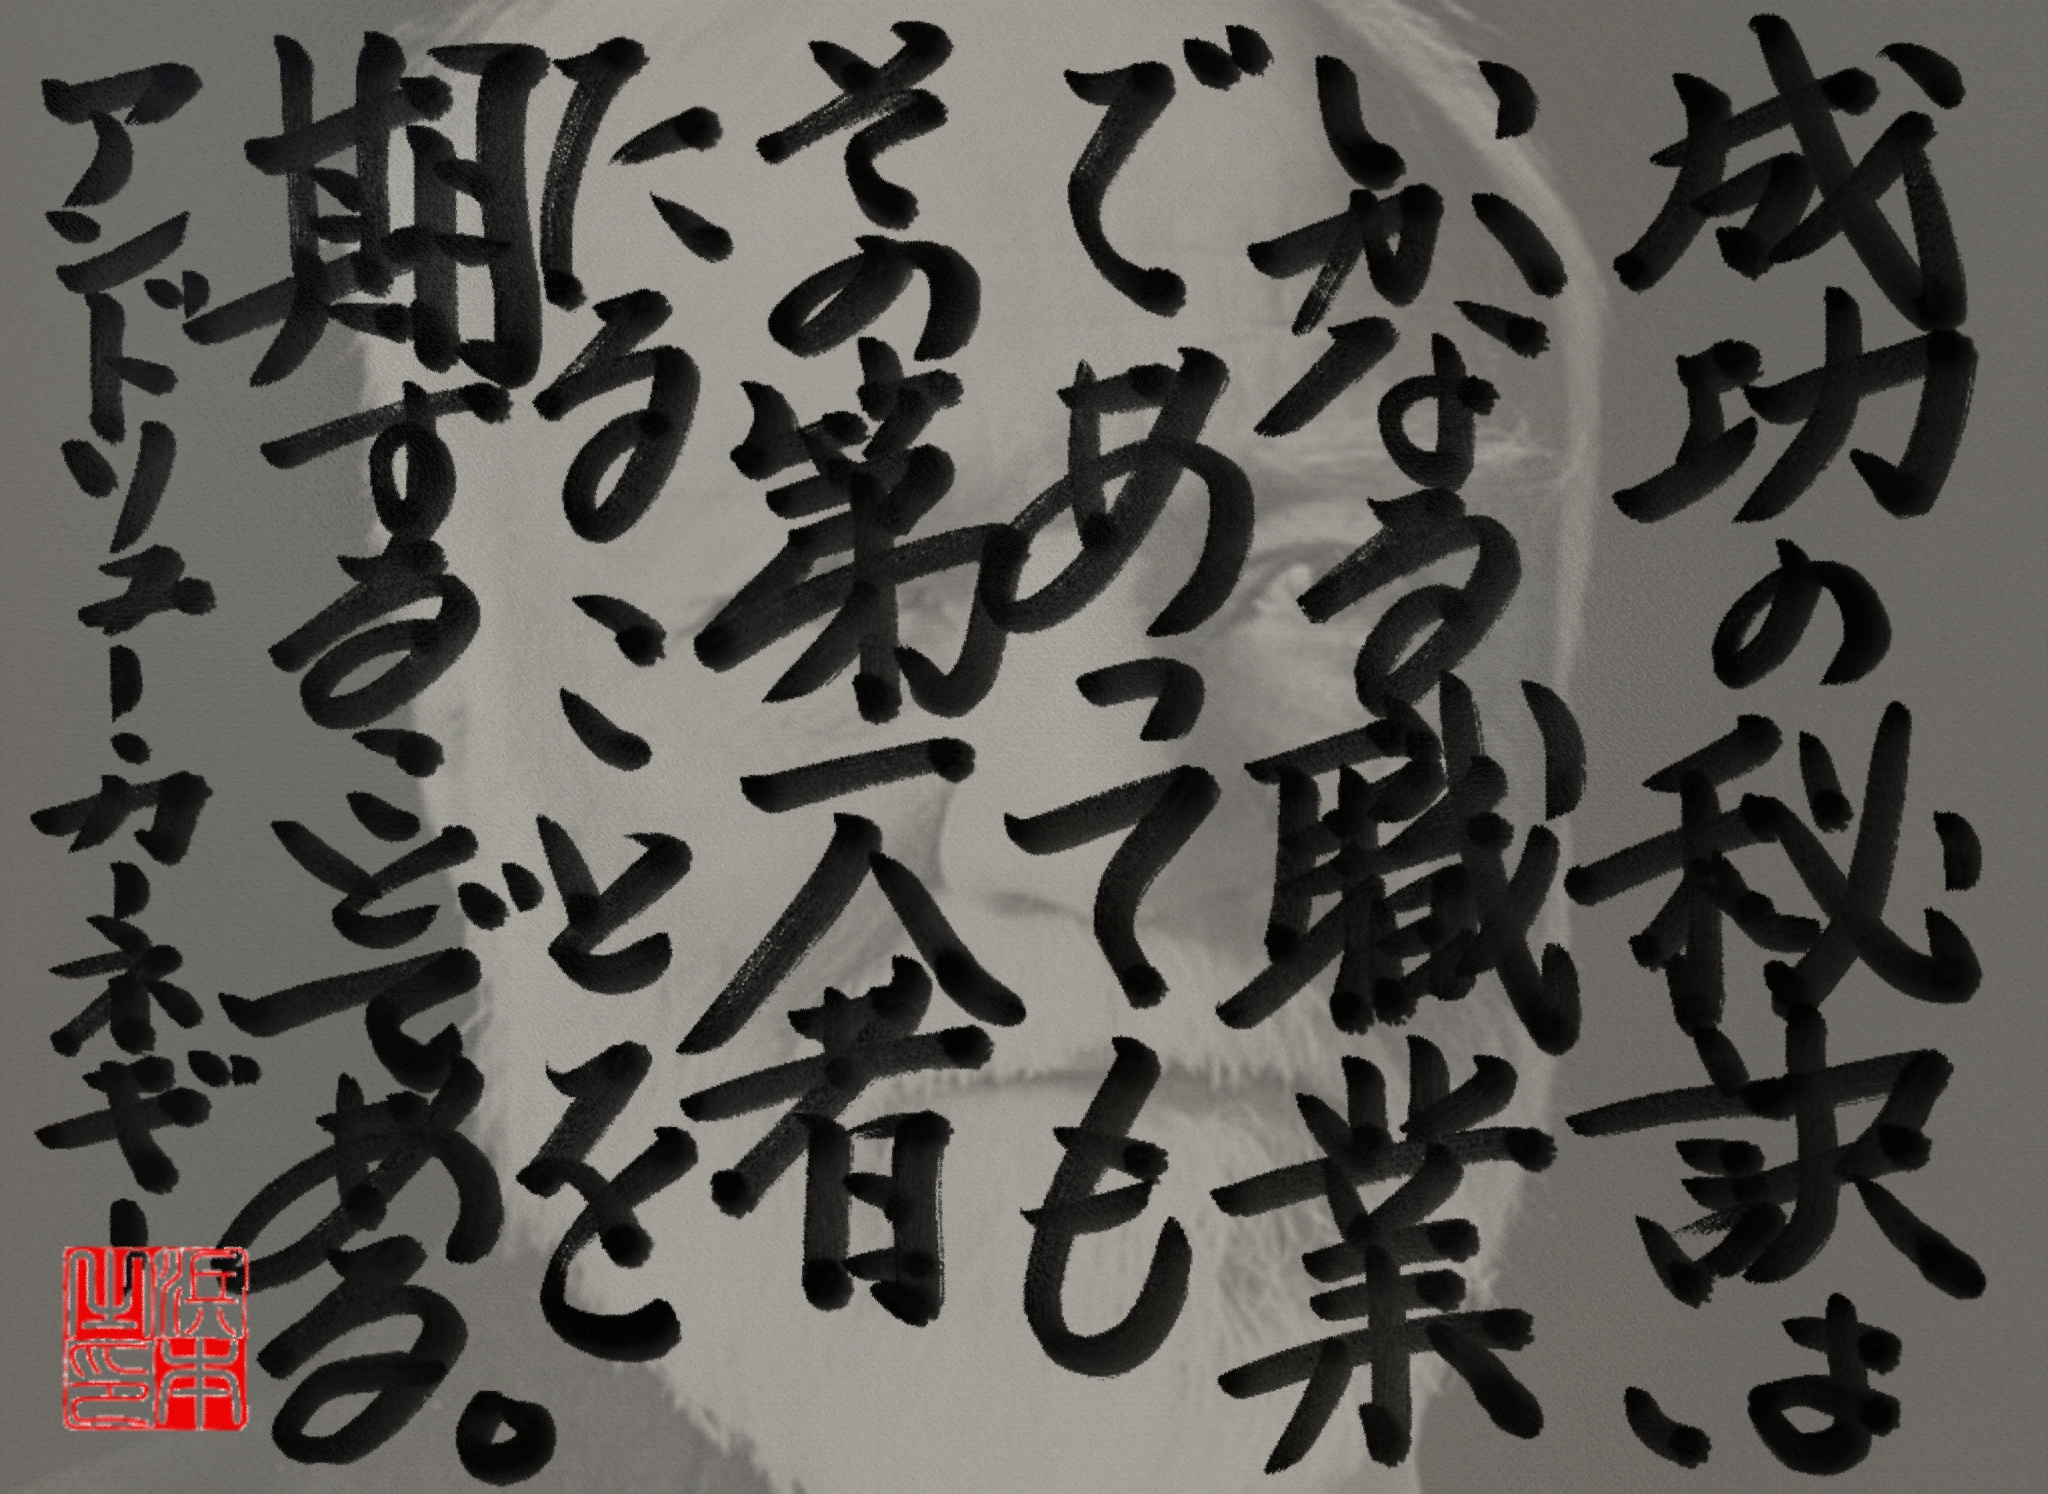 成功の秘訣は、
いかなる職業
であっても
その第一人者
たることを
期することである。
アンドリュー・カーネギー
浜本之印